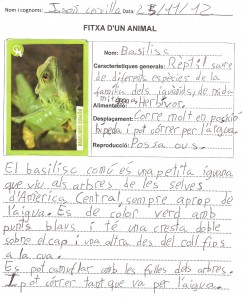 Nom i cognoms: Data: 25/11/12
FITXA D'UN ANIMAL
Nom: Basilisc
Característiques generals: Rèptil saure
de diferents espècies de la
família dels iguànids, de mida
mitjana.
Alimentació: Herbívor.
Desplaçament: Corre molt en posició
bípeda i pot córrer per l'aigua.
Reproducció: Possa ous.
El basilisc comú és una petita iguana
que viu als arbres de les selves
d'Amèrica Central, sempre aprop de
l'aigua. És de color verd amb
punts blaus i té una cresta doble
sobre el cap i una altra des del coll fins
a la cua.
Es pot camuflar amb les fulles dels arbres.
I pot córrer tant que va per l'aigua.